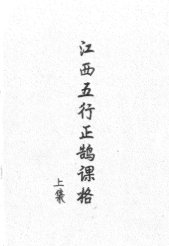 江西五行正鹄課格
上集